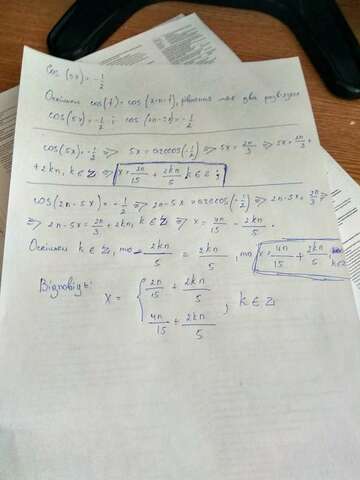 cos(5x) = -1/2
Оскільки cos(t) = cos(2π-t), рівняння має два розв'язки
cos(5x) = -1/2 і cos(2π-5x) = -1/2
cos(5x) = -1/2 => 5x = arccos(-1/2) => 5x = 2π/3 => 5x = 2π/3 +
+ 2kπ, k ∈ Z => x = 2π/15 + 2kπ/5, k ∈ Z ;
cos(2π-5x) = -1/2 => 2π-5x = arccos(-1/2) => 2π-5x = 2π/3 =>
=> 2π-5x = 2π/3 + 2kπ, k ∈ Z => x = 4π/15 - 2kπ/5 .
Оскільки k ∈ Z, то - 2kπ/5 = 2kπ/5 , то x = 4π/15 + 2kπ/5 , k ∈ Z
Відповідь:
x = { 2π/15 + 2kπ/5
4π/15 + 2kπ/5 , k ∈ Z